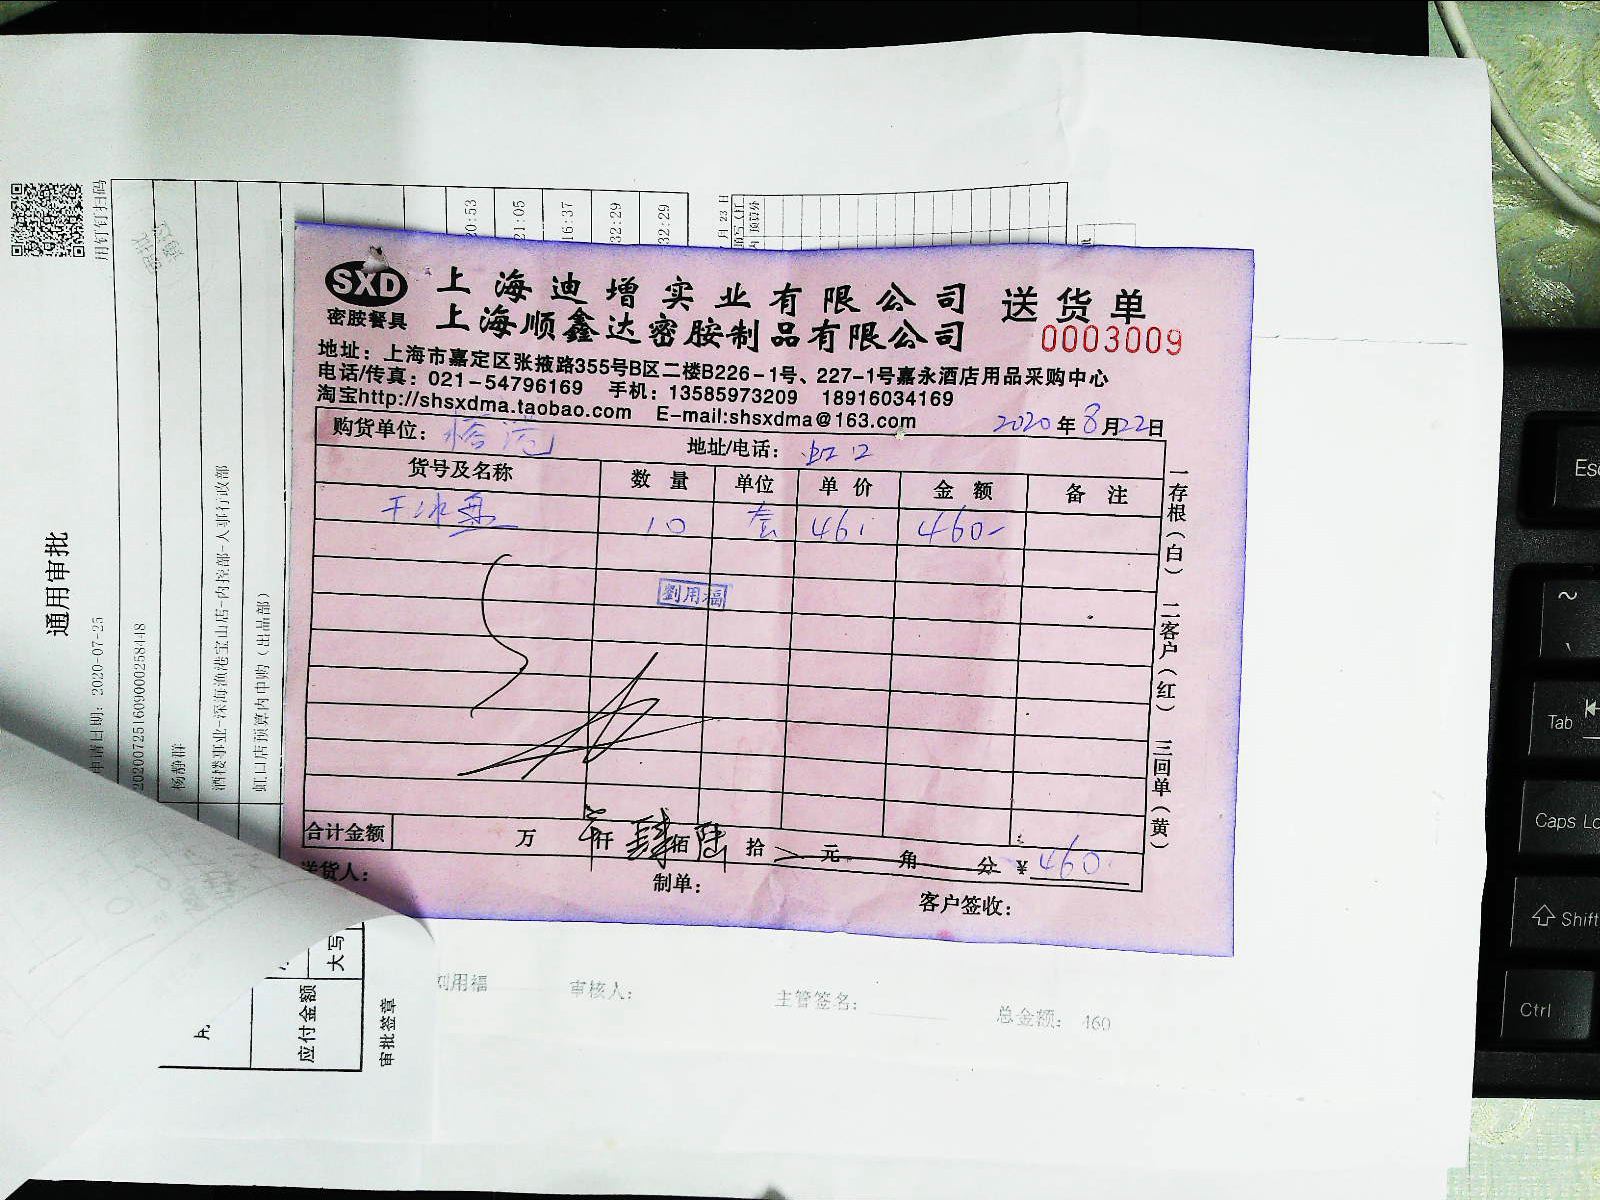 SXD
密胺餐具
上海迪增实业有限公司
上海顺鑫达密胺制品有限公司
送货单
0003009
地址：上海市嘉定区张掖路355号B区二楼B226-1号、227-1号嘉永酒店用品采购中心
电话/传真：021-54796169 手机：13585973209 18916034169
淘宝http://shsxdma.taobao.com E-mail:shsxdma@163.com
2020年8月22日
购货单位： 地址/电话：虹口
货号及名称 数量 单位 单价 金额 备注
干冰盘 10 套 46 460-
劉用福
合计金额 万 仟 肆佰 陆拾 元 角 分 ¥460
送货人：
制单：
客户签收：
一存根（白） 二客户（红） 三回单（黄）
刘用福 审核人： 主管签名： 总金额： 460
用钉钉扫码
通用审批
申请日期：2020-07-25
202007251609000258448
杨静群
酒楼事业-深海渔港宝山店-内控部-人事行政部
虹口店预算内申购（出品部）
20:53
21:05
16:37
32:29
32:29
月 23 日
大写
应付金额
审批签章
Esc
~
Tab
Caps Lo
Shift
Ctrl